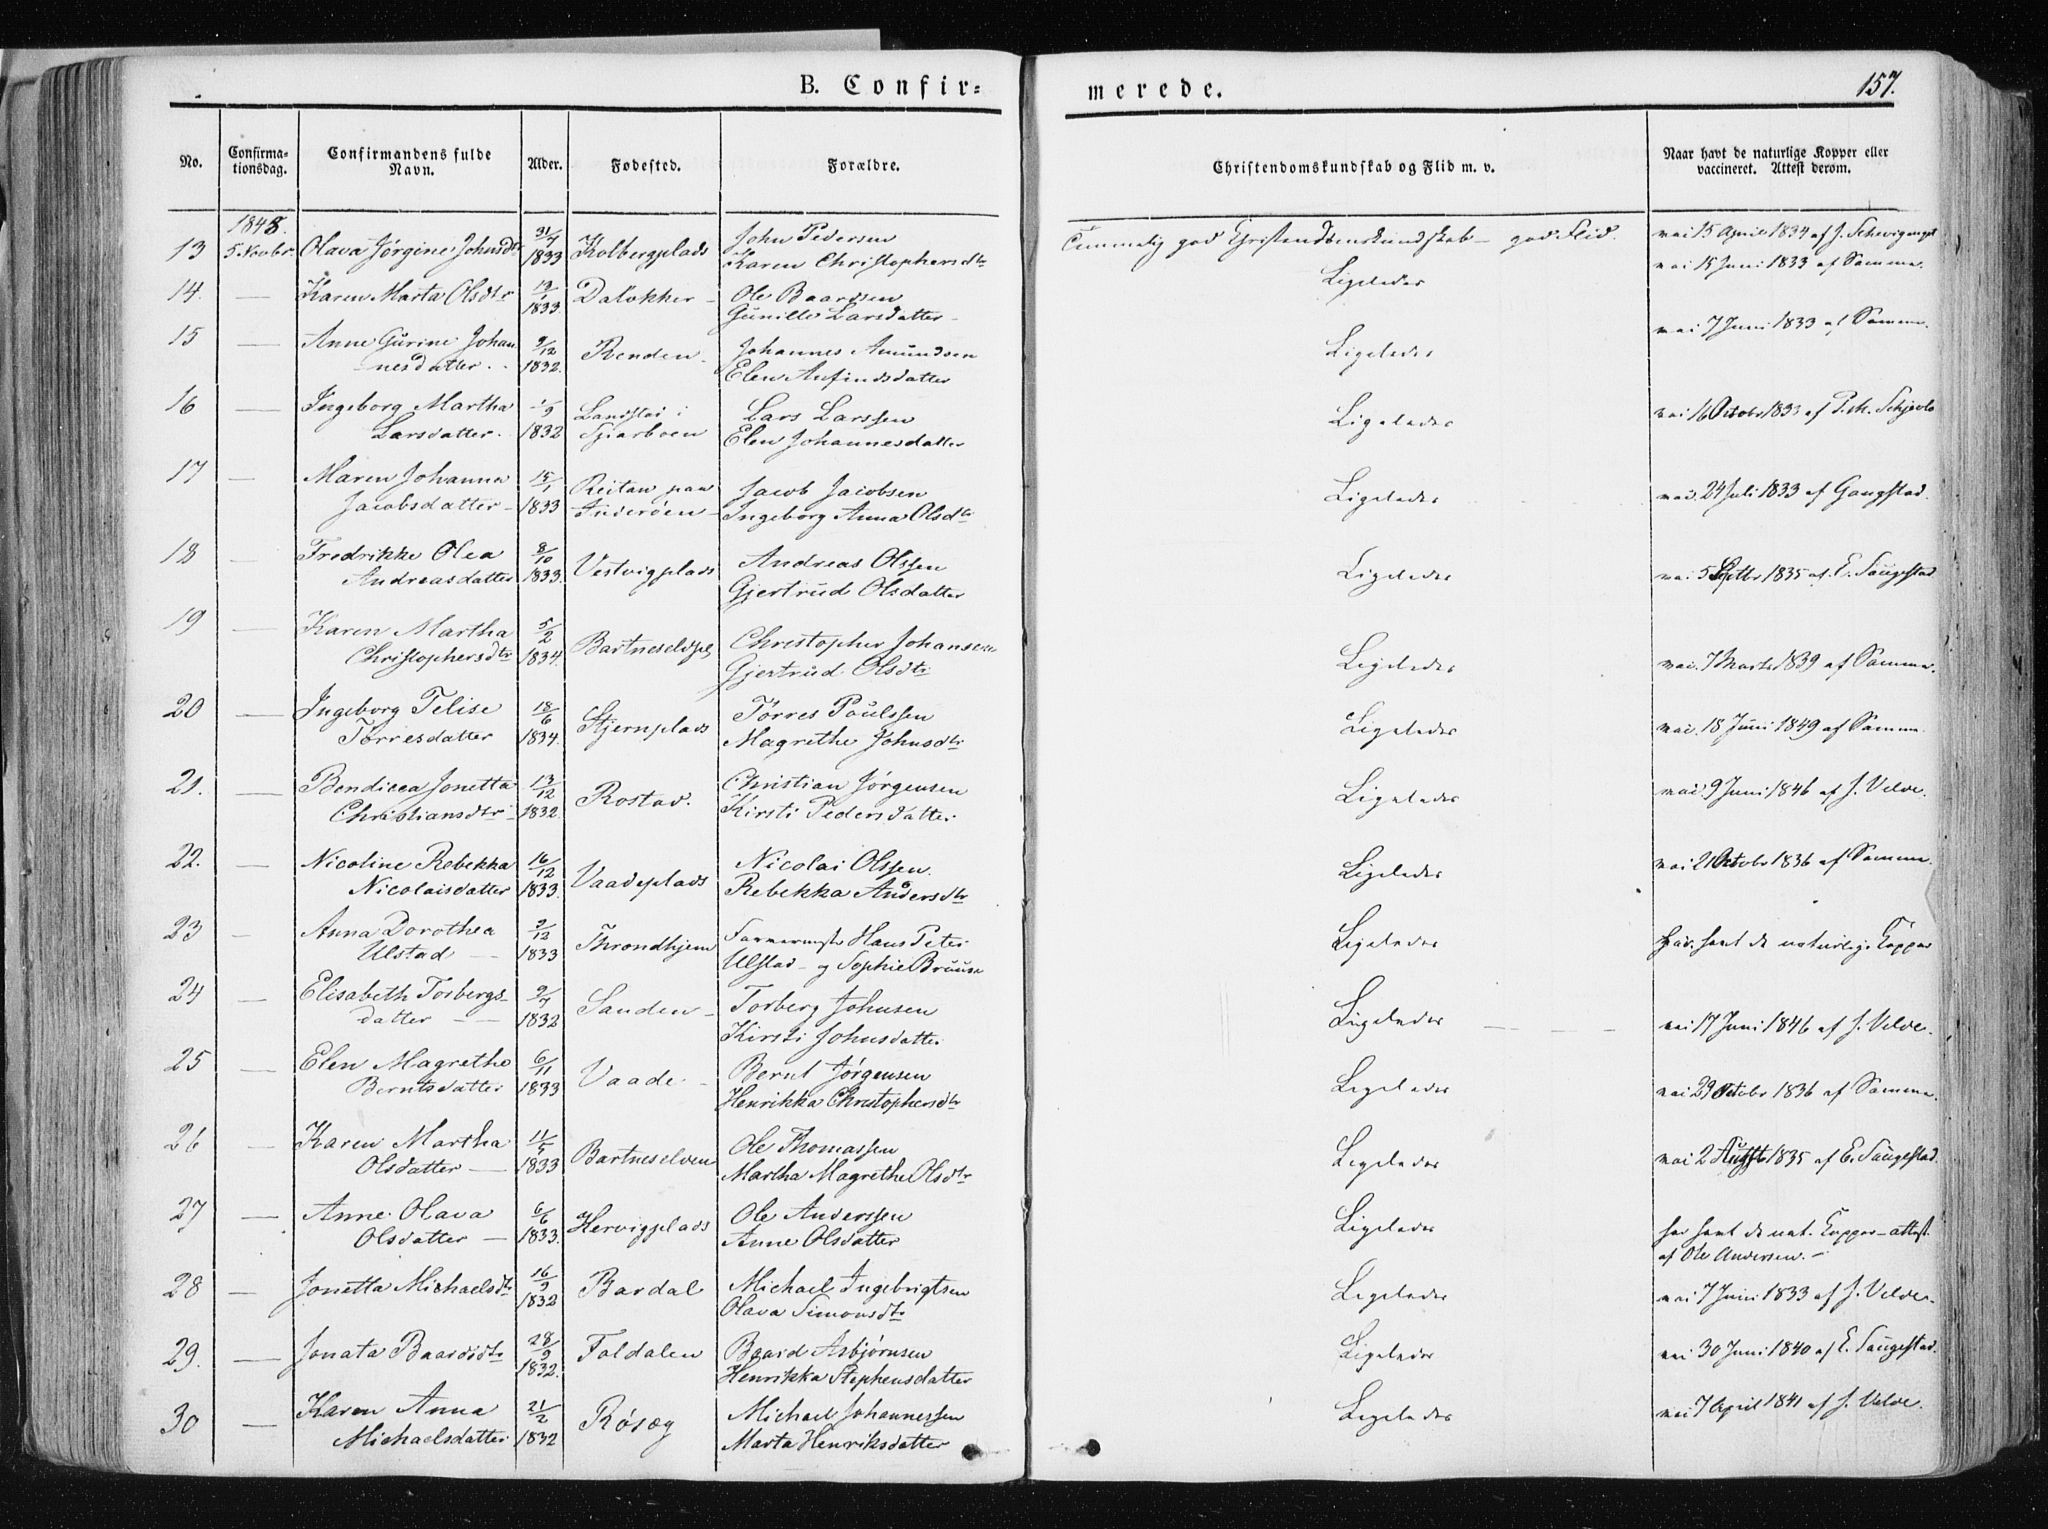 B. Confir=
merede.
157.
No.
Confirma-
tionsdag.
Confirmandens fulde
Navn.
Alder.
Fødested.
Forældre.
Christendomskundskab og Flid m. v.
Naar havt de naturlige Kopper eller
vaccineret. Attest derom.
1848.
13 5 Novbr. Olava Jørgine Johnsdtr 31/7 1833 Kolbergplads John Pedersen
Karen Christophersdtr
Temmelig god Christendomskundskab - god Flid.
vac. 15 April 1834 af J.
14. — Karen Marta Olsdtr 13/1 1833. Dalokker - Ole Baardsen
Gunille Larsdatter -
Ligeledes
vac. 15 Juni 1833 af Samme.
15 — Anne Gurine Johan
nesdatter. 9/12 1832. Renden - Johannes Amundsen
Elen Anfindsdatter
Ligeledes
vac. 7 Juni 1833 af Samme.
16 — Ingeborg Martha
Larsdatter. 1832 i Lars Larssen
Elen Johannesdatter
Ligeledes
vac. 16 Octobr 1833 af P. M. Schjevlo
17 — Maren Johanna
Jacobsdatter - 15/1 1833 Reitan paa
Inderøen - Jacob Jacobsen
Ingeborg Anna Olsdtr
Ligeledes
vac. 24 Juli 1833 af Gangstad.
18 — Fredrikke Olea
Andreasdatter 8/10 1833. Vestvigplads Andreas Olssen
Gjertrud Olsdatter
Ligeledes
vac. 5 Septbr 1835 af E. Saugestad
19 — Karen Martha
Christophersdtr 5/2 1834. Bartneselvpl. Christopher Johansen
Gjertrud Olsdtr
Ligeledes
vac. 7 Marts 1839 af Samme.
20 — Ingeborg Telise
Tørresdatter 18/6 1834. Stjernplads Tørres Paulssen
Magrethe Johnsdtr
Ligeledes
vac. 18 Juni 1849 af Samme.
21. — Bendicea Jonetta
Christiansdtr 13/12 1832. Rostad. Christian Jørgensen
Kirsti Pedersdatter
Ligeledes
vac. 9 Juni 1846 af J. Velde.
22. — Nicoline Rebekka
Nicolaisdatter 16/12 1833. Vaadeplads Nicolai Olssen.
Rebekka Andersdtr
Ligeledes
vac. 21 Octobr 1836 af Samme.
23 — Anna Dorothea
Ulstad — 9/12 1833 Throndhjem Hans Peter
Ulstad - og Sophie Bruuse
Ligeledes
har havt de naturlige Kopper
24 — Elisabeth Torbergs-
datter — 9/7 1832 Sanden - Torberg Johnsen
Kirsti Johnsdatter
Ligeledes
vac. 17 Juni 1846 af J. Velde.
25 — Elen Magrethe
Berntsdatter 6/11 1833 Vaade - Bernt Jørgensen
Henrikka Christophersdtr
Ligeledes
vac. 29 Octobr 1836 af Samme.
26 — Karen Martha
Olsdatter — 11/5 1833 Bartneselven Ole Thomassen
Martha Magrethe Olsdtr
Ligeledes
vac. 2 Augst 1835 af E. Saugestad.
27 — Anne Olava
Olsdatter — 6/6 1833. Hervigplads Ole Anderssen
Anne Olsdatter
Ligeledes
har havt de nat. Kopper - attest.
af Ole Andersen. -
28 — Jonetta Michaelsdtr 16/9 1832 Bardal Michael Ingebrigtsen
Olava Simonsdtr
Ligeledes
vac. 7 Juni 1833 af J. Velde.
29. — Jonata Baardsdtr 28/9 1832. Foldalen Baard Asbjørnsen
Henrikka Stephensdatter
Ligeledes
vac. 30 Juni 1840 af E. Saugestad.
30 — Karen Anna
Michaelsdatter 21/2 1832 Røsæg Michael Johannessen
Marta Henriksdatter
Ligeledes
vac. 7 April 1841 af J. Velde.